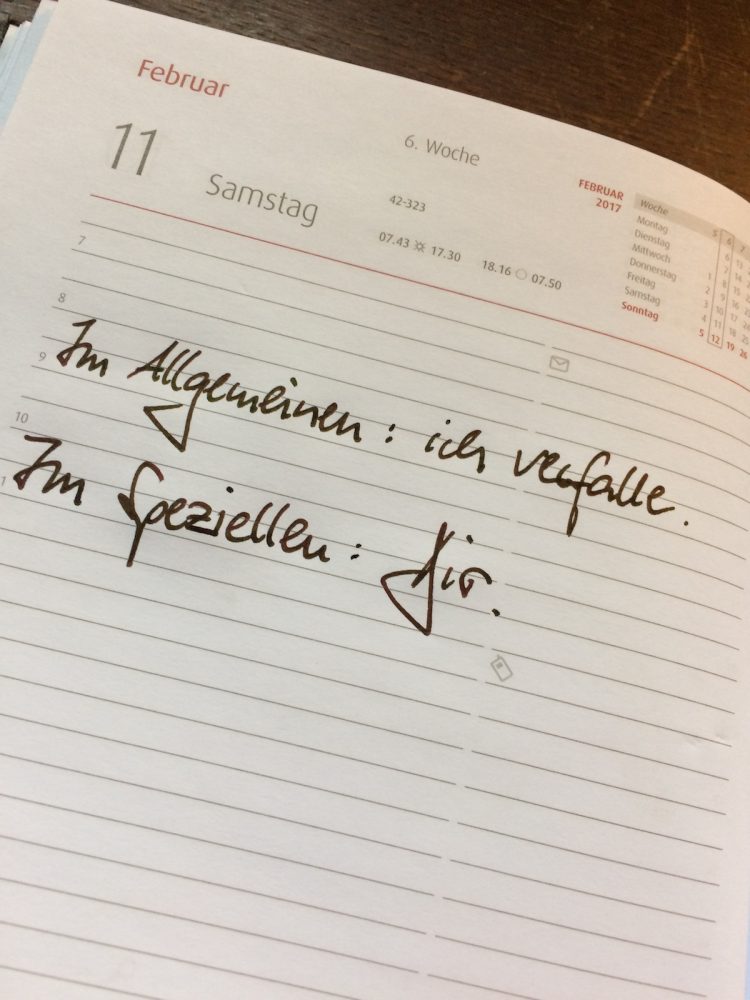 Februar
11 Samstag
6. Woche
42-323
07.43 17.30 18.16 07.50
FEBRUAR
2017
Woche 5 6 7
Montag 6
Dienstag 7 14
Mittwoch 1 8 15
Donnerstag 2 9 16
Freitag 3 10 17
Samstag 4 11 18 25
Sonntag 5 12 19 26
7
8
Im Allgemeinen: ich verfalle.
9
10
Im Speziellen: dir.